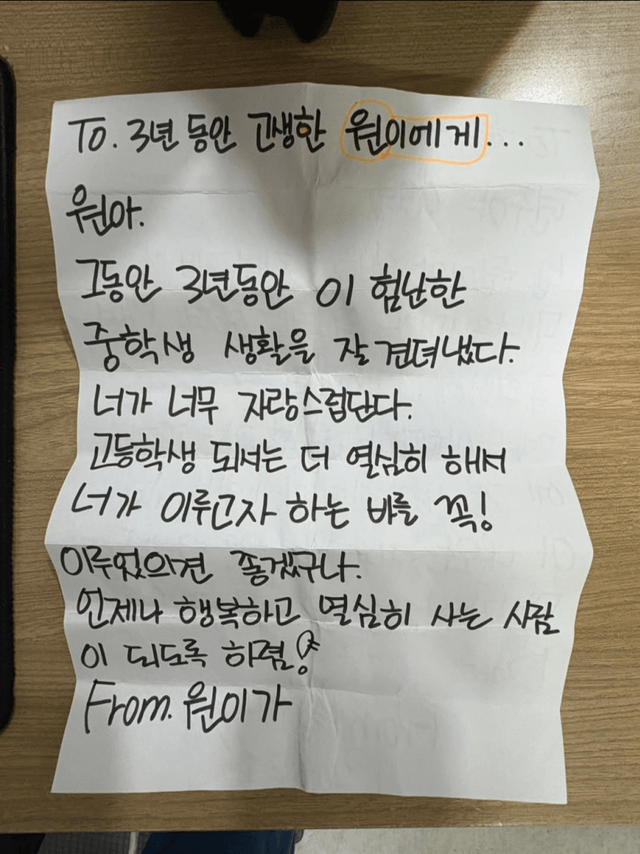 To. 3년 동안 고생한 원이에게...
원아.
그동안 3년동안 이 험난한
중학생 생활을 잘 견뎌냈다.
너가 너무 자랑스럽단다.
고등학생 되서는 더 열심히 해서
너가 이루고자 하는 바를 꼭!
이루었으면 좋겠구나.
언제나 행복하고 열심히 사는 사람
이 되도록 하렴!
From. 원이가